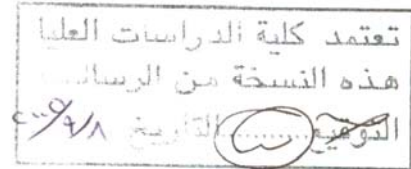 تعتمد كلية الدراسات العليا
هذه النسخة من الرسالـــة
التوقيع........التاريخ